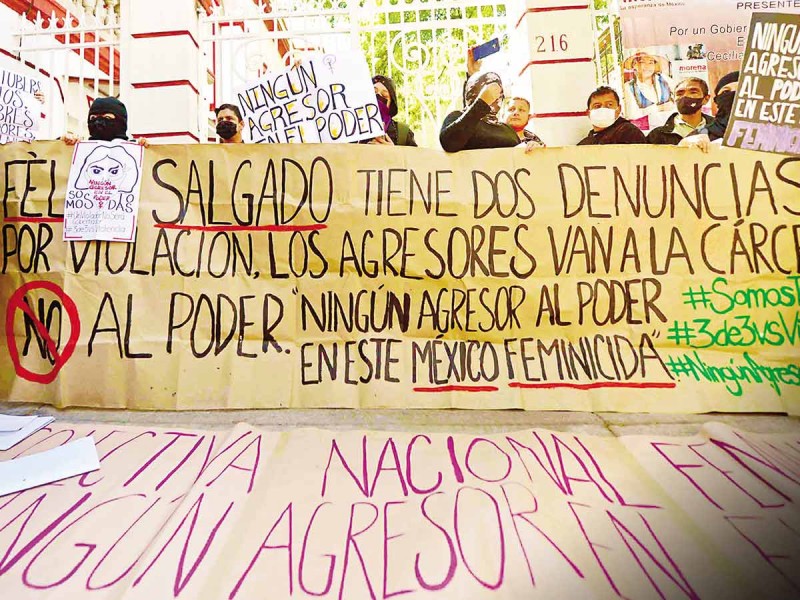 216
PRESENTE
Por un Gobier
morena
NINGÚN
AGRESOR
EN EL PODER
NINGÚN
AGRES
AL POD
EN ESTE
FEMINICI
NINGÚN
AGRESOR
EN EL
PODER
SO MOS
FÉL SALGADO TIENE DOS DENUNCIAS
POR VIOLACIÓN, LOS AGRESORES VAN A LA CÁRCE
NO AL PODER. "NINGÚN AGRESOR AL PODER
EN ESTE MÉXICO FEMINICIDA"
#SomosT
#3de3vsVi
#NingúnAgres
ECTIVA NACIONAL FEM
NGÚN AGRESOR EN